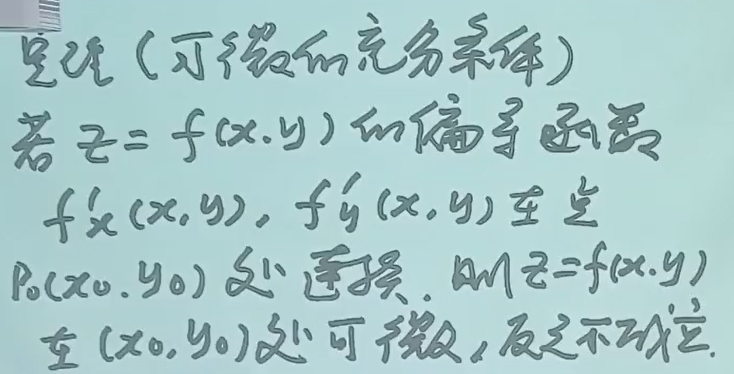 定理(可微的充分条件)
若 z = f(x.y) 的偏导函数
f'x(x,y), f'y(x,y) 在点
P₀(x₀.y₀) 处连续. 则 z=f(x.y)
在 (x₀,y₀)处可微,反之不成立.